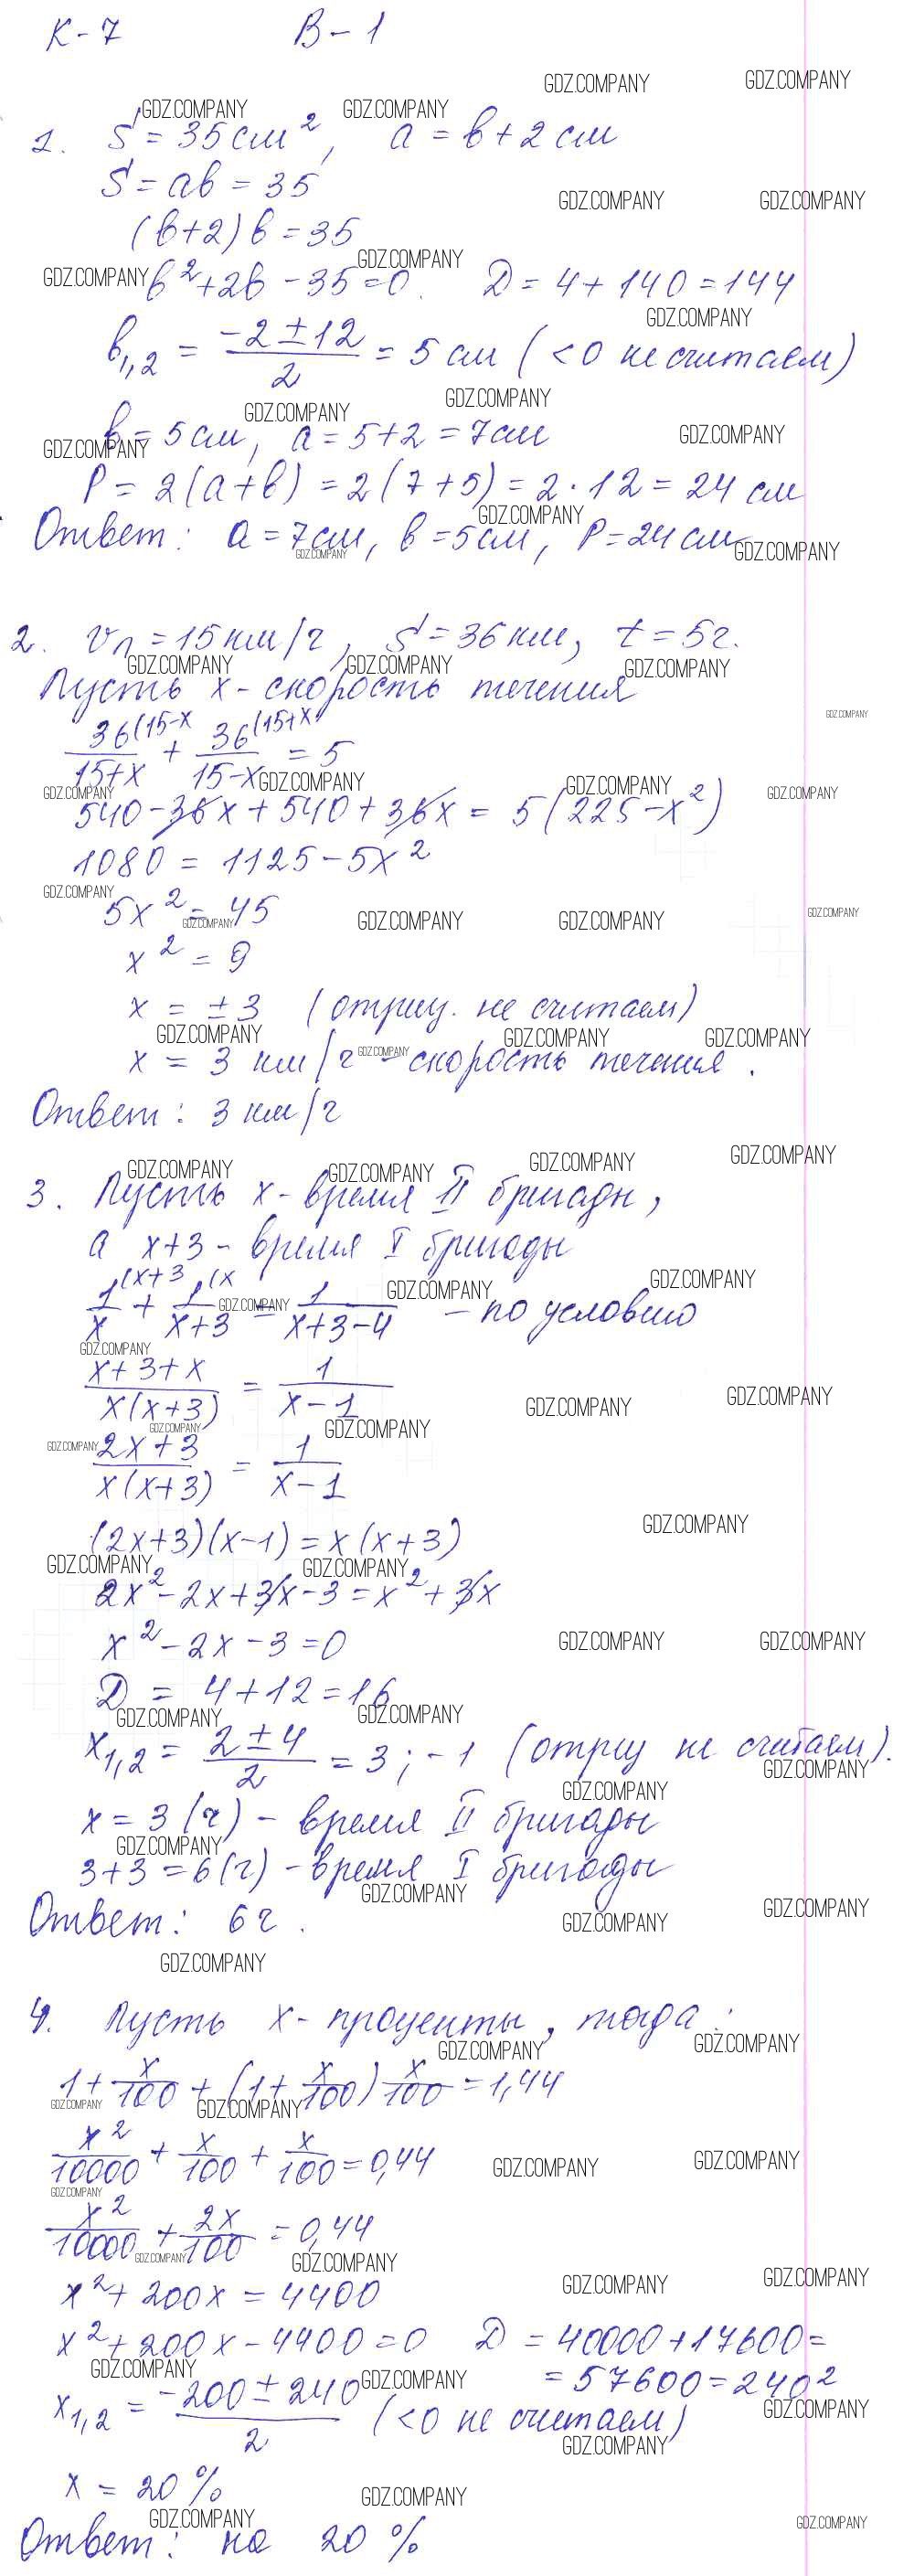 К-7 В-1
1. S = 35 см², a = b + 2 см
S = ab = 35
(b+2) b = 35
b² + 2b - 35 = 0. D = 4 + 140 = 144
b₁,₂ = (-2 ± 12)/2 = 5 см (<0 не считаем)
b = 5 см, a = 5 + 2 = 7 см
P = 2(a+b) = 2(7+5) = 2·12 = 24 см
Ответ: a = 7 см, b = 5 см, P = 24 см
2. vл = 15 км/ч, S = 36 км, t = 5 ч.
Пусть x - скорость течения
36(15-x/15+x + 36(15+x/15-x = 5
540 - 36x + 540 + 36x = 5(225 - x²)
1080 = 1125 - 5x²
5x² = 45
x² = 9
x = ±3 (отриц. не считаем)
x = 3 км/ч - скорость течения.
Ответ: 3 км/ч
3. Пусть x - время II бригады,
а x+3 - время I бригады
1(x+3/x + 1(x/x+3 = 1/x+3-4 - по условию
x+3+x/x(x+3) = 1/x-1
2x+3/x(x+3) = 1/x-1
(2x+3)(x-1) = x(x+3)
2x² - 2x + 3x - 3 = x² + 3x
x² - 2x - 3 = 0
D = 4 + 12 = 16
x₁,₂ = (2 ± 4)/2 = 3; -1 (отриц не считаем).
x = 3 (ч) - время II бригады
3 + 3 = 6 (ч) - время I бригады
Ответ: 6 ч.
4. Пусть x - проценты, тогда:
1 + x/100 + (1 + x/100) x/100 = 1,44
x²/10000 + x/100 + x/100 = 0,44
x²/10000 + 2x/100 = 0,44
x² + 200x = 4400
x² + 200x - 4400 = 0 D = 40000 + 17600 =
= 57600 = 240²
x₁,₂ = (-200 ± 240)/2 (<0 не считаем)
x = 20 %
Ответ: на 20 %